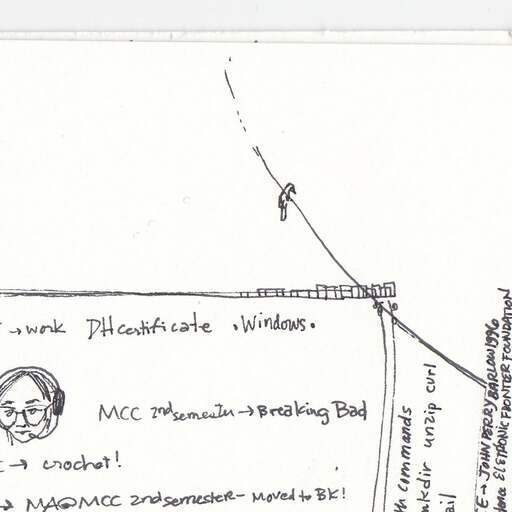 → work DH certificate . Windows.
MCC 2nd semester → Breaking Bad
→ crochet!
→ MA @ MCC 2nd semester - Moved to BK!
commands
mkdir unzip curl
E → JOHN PERRY BARLOW 1996
ELETRONIC FRONTIER FOUNDATION